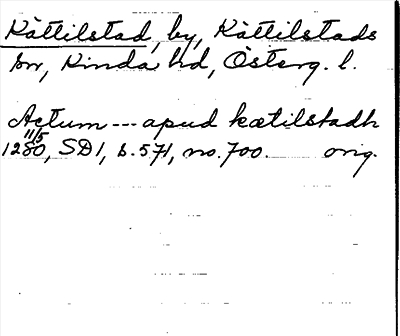 Kättilstad, by, Kättilstads
sn, Kinda hd, Österg. l.
Actum --- apud kætilstadh
11/5
1280, SD 1, s. 571, no. 700. orig.